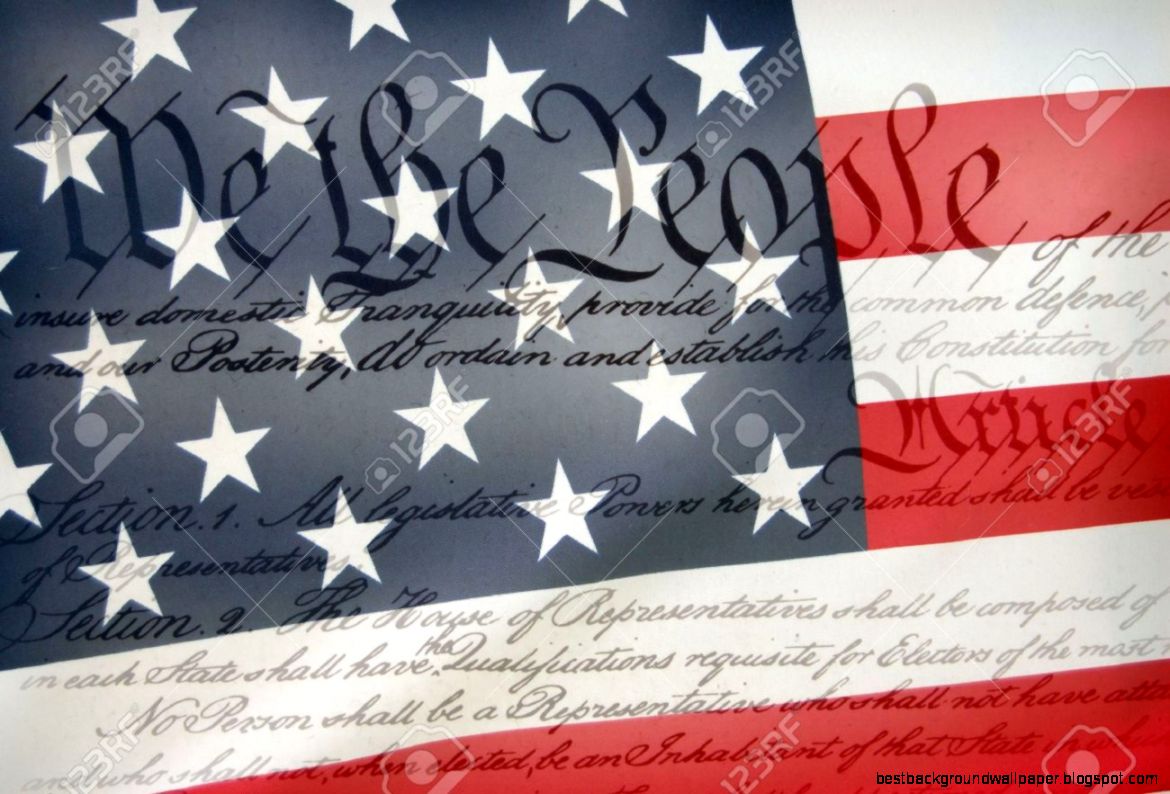 We the People of the
insure domestic Tranquility, provide for the common defence,
and our Posterity, do ordain and establish this Constitution for
Article
Section. 1. All legislative Powers herein granted shall be
of Representatives.
Section. 2. The House of Representatives shall be composed of
in each State shall have the Qualifications requisite for Electors of the most
No Person shall be a Representative who shall not have
and who shall not, when elected, be an Inhabitant of that State in
123RF
bestbackgroundwallpaper.blogspot.com